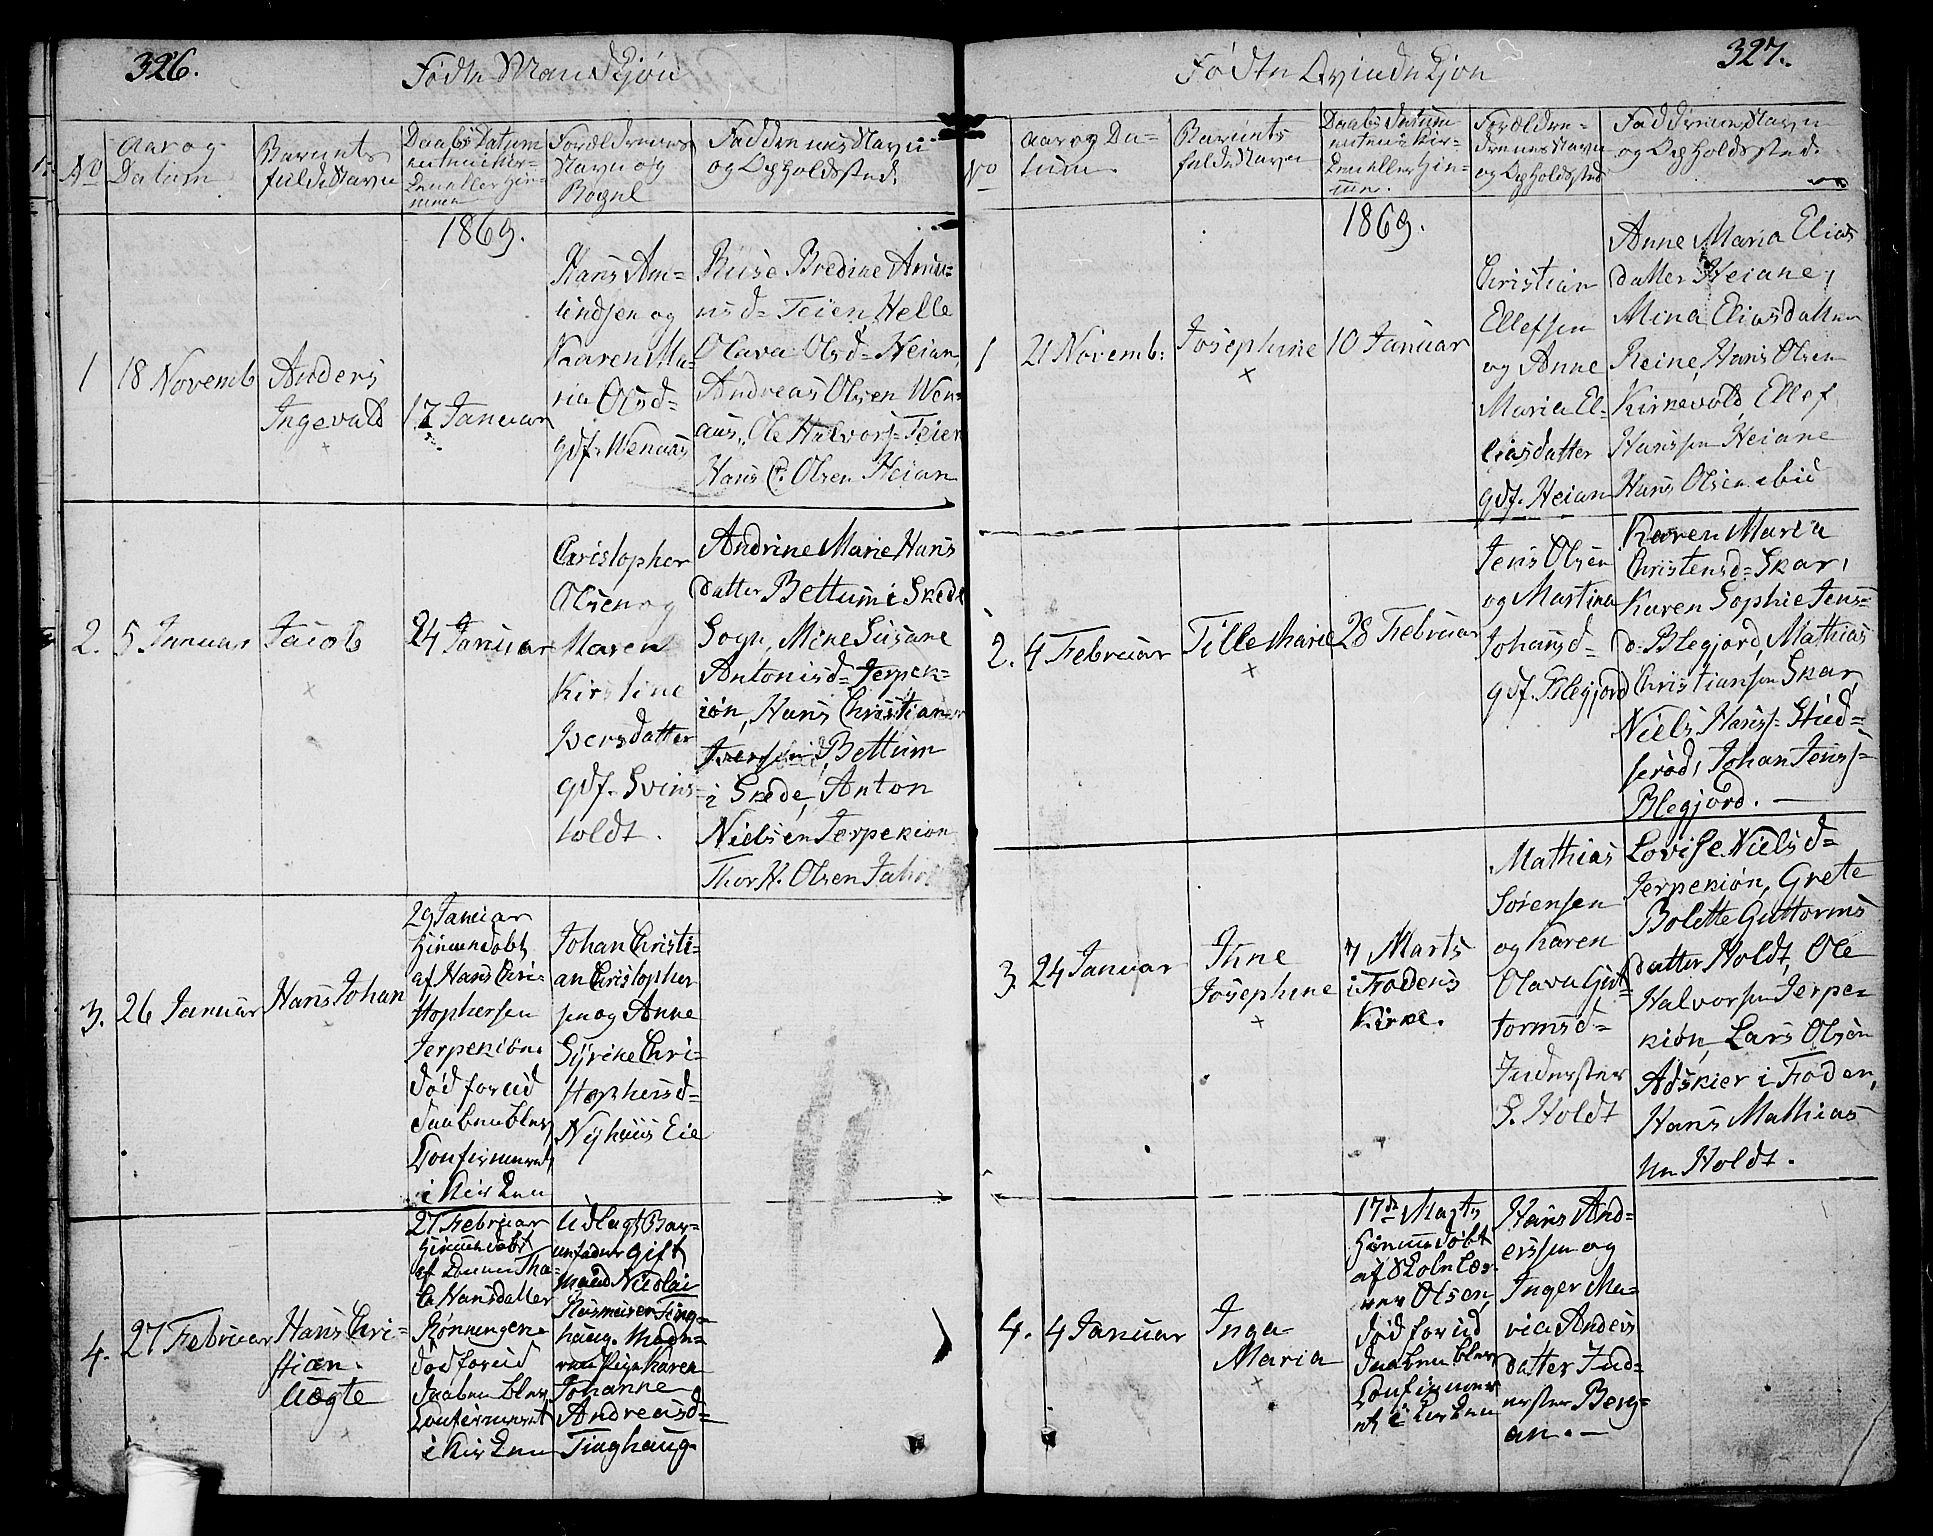 326.
Fødte Mandkjøn
No
Aar og
Datum
Barnets
fulde Navn
Daabs Datum
enten i Kir-
ken eller Hjem-
men
Forældrenes
Navn og
Fadderenes Navn
og Opholdssted.
1869.
1
18 Novemb
Anders
Ingevald
17 Januar
Hans Am-
undsen og
Karen Ma-
ria Olsd=
gdf. Wenaas
Bredine Amu-
nsd= Teien Helle
Olava Olsd= Heian,
Andreas Olsen Wen-
aas, Ole Halvors= Teien
Hans C. Olsen Heian
2.
5 Januar
Jacob
24 Januar
Christopher
Olsen og
Maren
Kirstine
Iversdatter
gdf. Svins-
holdt.
Andrine Marie Hans
datter Bettum i Skede
Sogn, Mine Susane
Antonisd= Jerpek-
iøn, Hans Christian
Bettum
i Skede, Anton
Nielsen Jerpekiøn
Thor H. Olsen
3.
26 Januar
Hans Johan
29 Januar
Hjemmedøbt
af Hans Chri-
stophersen
Jerpekiøn.
død forud
Daaben blev
Confirmeret
i Kirken
Johan Christi-
an Christopher
sen og Anne
Syrine Chri-
stophersd=
Nyhuus Eie
4.
27 Februar
Hans Chri-
stian.
Uægte
27 Februar
Hjemmedøbt
af Konen Tha-
Hansdatter
Rønningen.
død forud
Daaben blev
Confirmeret
i Kirken
Udlagt Bar-
nefader gift
mand Nicolai
Rasmusen Ting-
haug. Mode-
ren Pige Karen
Johanne
Andreasd=
Tinghaug.
327.
Fødte Qvindekjøn
No
Aar og Da-
tum.
Barnets
fulde Navn
Daabs Datum
enten i Kir-
ken eller Hjem-
me.
Foreldre-
drenes Navn
og Opholdssted
Faddernes Navn
og Opholdssted.
1869.
1
21 Novemb:
Josephine
10 Januar
Christian
Ellefsen
og Anne
Maria El-
liasdatter
gdf. Heian
Anne Maria Elias
datter Heiane,
Mina Eliasdatter
Reine, Hans Olsen
Kirkevold, Ellef
Hanssen Heiane
Hans Olsen ibid
2.
4 Februar
Tille Marie
28 Februar
Jens Olsen
og Martina
Johansd=
gdf. Blegjord
Karen Maria
Christensd= Skar,
Karen Sophie Jens-
d. Blegjord, Mathias
Christiansen Skar,
Niels Hanss= Stud-
serød, Johan Jenss=
Blegjord. —
3.
24 Januar
Thne
Josephine
7 Marts
i Fodens
Kirke.
Mathias
Sørensen
og Karen
Olava Gut-
tormsd=
Inderster
S. Holdt
Lovise Nielsd=
Jerpekiøn, Grete
Bolette Guttorms
datter Holdt, Ole
Halvorsen Jerpe-
kiøn, Lars Olsen
Adskier i Foden,
Hans Mathias
sen Holdt.
4.
4 Januar
Inga
Maria
17de Marts
Hjemmedøbt
af Skolelær
rer Olsen,
død forud
Daaben blev
Confirmer
et i Kirken
Hans And-
erssen og
Inger Ma-
ria Anders
datter Ind-
erster Berg-
an. —